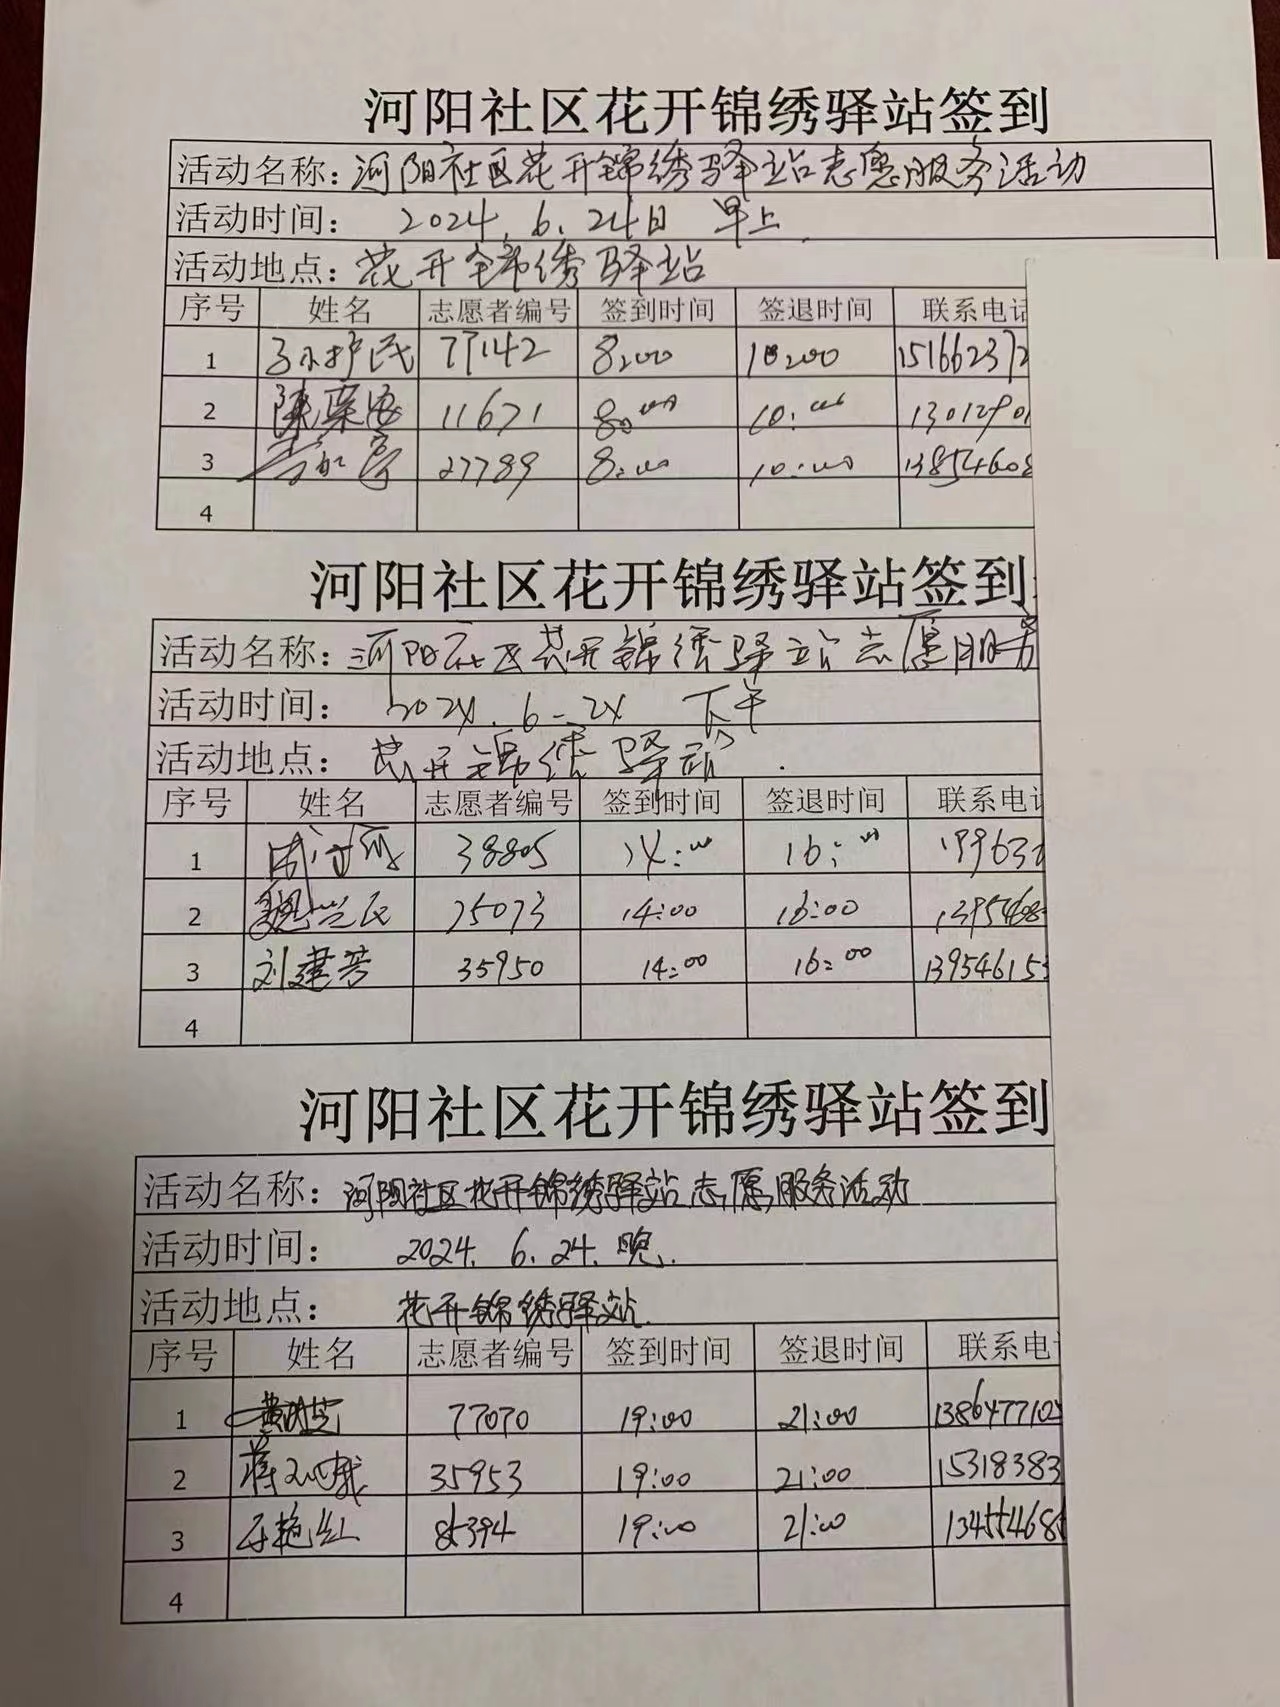 河阳社区花开锦绣驿站签到
活动名称：河阳社区花开锦绣驿站志愿服务活动
活动时间： 2024.6.24日 早上
活动地点：花开锦绣驿站
序号 姓名 志愿者编号 签到时间 签退时间 联系电话
1 77142 8:00 10:00 151662372
2 陈荣海 11671 8:00 10:00 1301290
3 27789 8:00 10:00 13854608
4
河阳社区花开锦绣驿站签到
活动名称：河阳社区花开锦绣驿站志愿服务
活动时间： 2024.6-24 下午
活动地点： 花开锦绣驿站
序号 姓名 志愿者编号 签到时间 签退时间 联系电话
1 38805 14:00 16:00 199632
2 魏兰民 25073 14:00 16:00 1395468
3 刘建芳 35950 14:00 16:00 139546155
4
河阳社区花开锦绣驿站签到
活动名称：河阳社区花开锦绣驿站志愿服务活动
活动时间： 2024.6.24.晚.
活动地点： 花开锦绣驿站.
序号 姓名 志愿者编号 签到时间 签退时间 联系电
1 77070 19:00 21:00 138647710
2 35953 19:00 21:00 15318383
3 85394 19:00 21:00 134554686
4